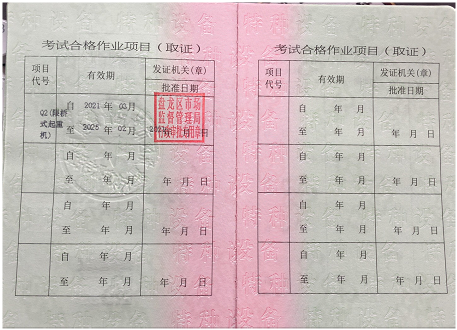 考试合格作业项目（取证）
项目代号
有效期
发证机关(章)
批准日期
Q2(限桥式起重机)
自 2021 年 03月
至 2025 年 02月
盘龙区市场
监督管理局
年 月 日
自 年 月
至 年 月
年 月 日
自 年 月
至 年 月
年 月 日
自 年 月
至 年 月
年 月 日
考试合格作业项目（取证）
项目代号
有效期
发证机关(章)
批准日期
自 年 月
至 年 月
年 月 日
自 年 月
至 年 月
年 月 日
自 年 月
至 年 月
年 月 日
自 年 月
至 年 月
年 月 日